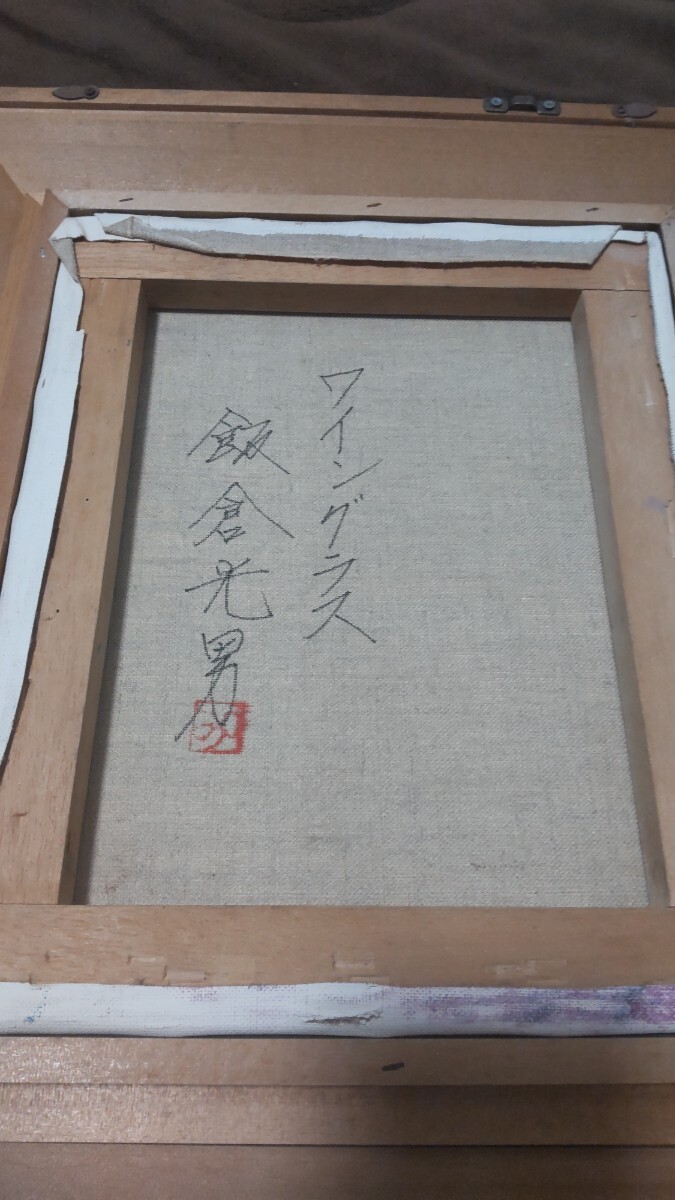 ワイングラス
飯倉光男